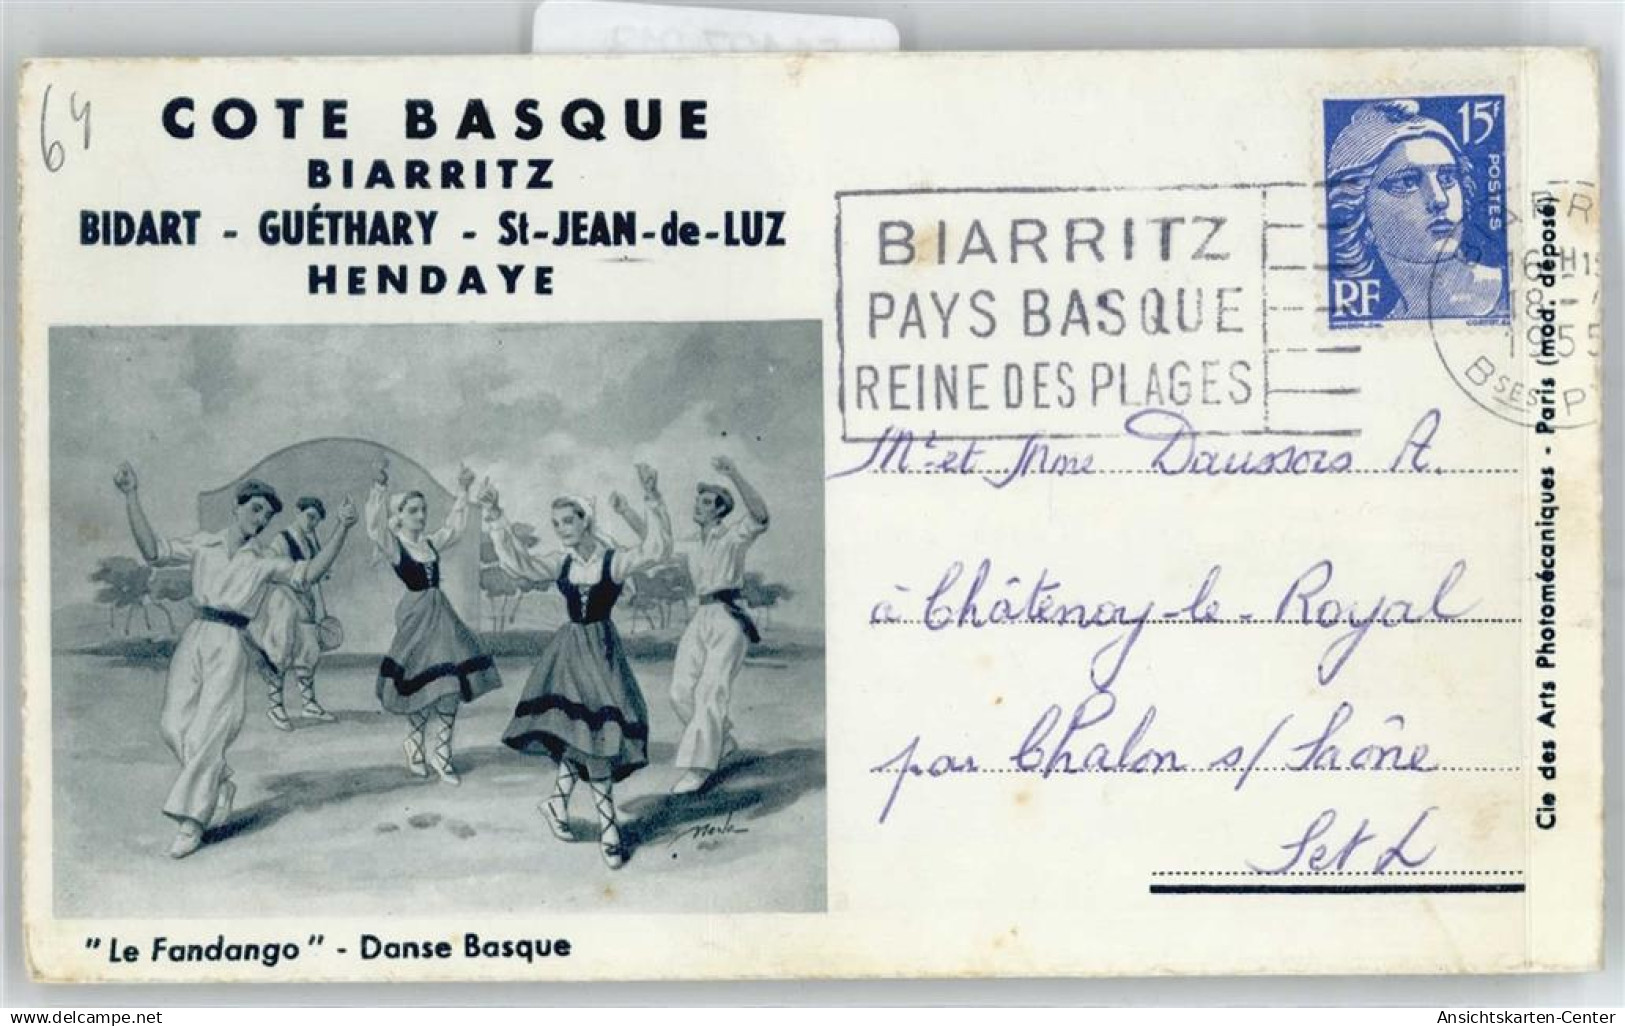 64
COTE BASQUE
BIARRITZ
BIDART - GUÉTHARY - St-JEAN-de-LUZ
HENDAYE
"Le Fandango" - Danse Basque
BIARRITZ
PAYS BASQUE
REINE DES PLAGES
15F
POSTES
RF
16H15
18 -
1955
BSES P
Mr et Mme Daussois A.
à Châtenoy-le-Royal
par Chalon s/ Saône
S et L
Cie des Arts Photomécaniques - Paris (mod. déposé)
delcampe.net
Ansichtskarten-Center